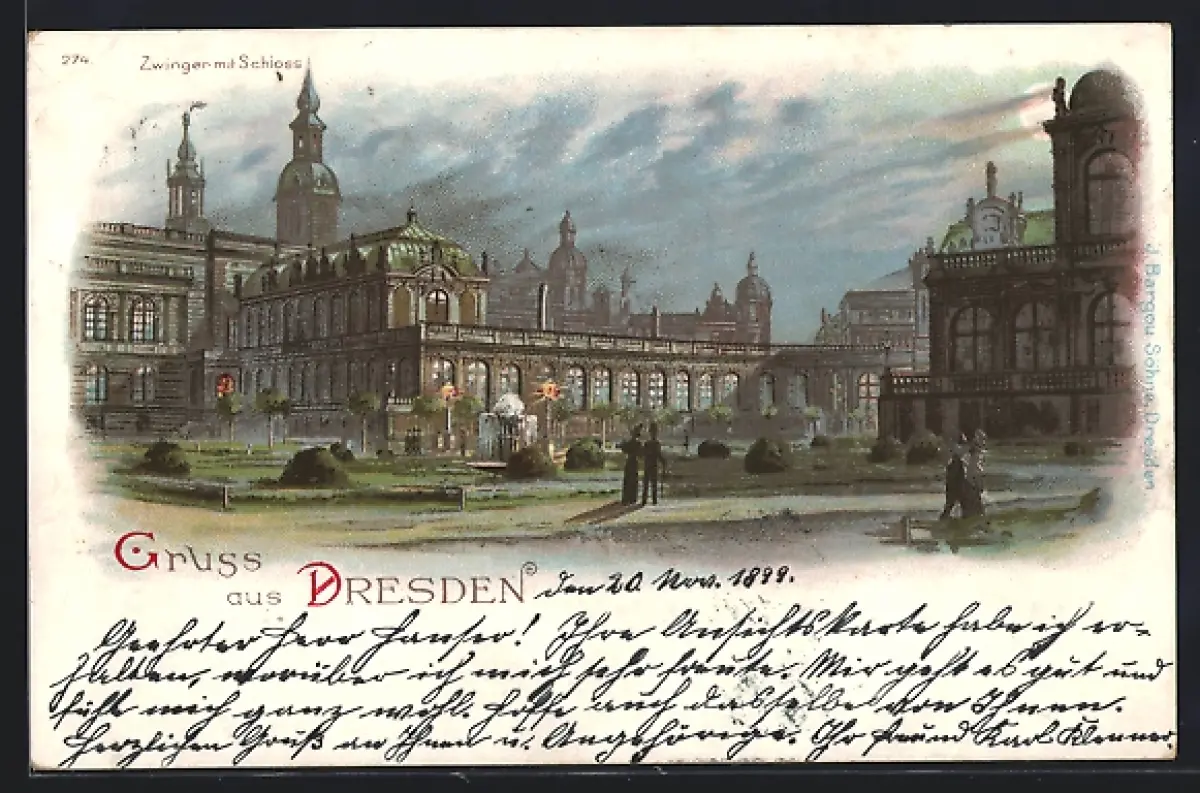 274.
Zwinger mit Schloss
J. Bargou Söhne, Dresden
Gruss
aus DRESDEN
den 20 Nov. 1899.
Geehrter Herr Hauser! Ihre Ansichtskarte habe ich er-
halten, worüber ich mich sehr freute. Mir geht es gut und
fühle mich ganz wohl. Hoffe auch dasselbe von Ihnen.
Herzlichen Gruß an Ihnen u. Angehörige. Ihr Freund Karl